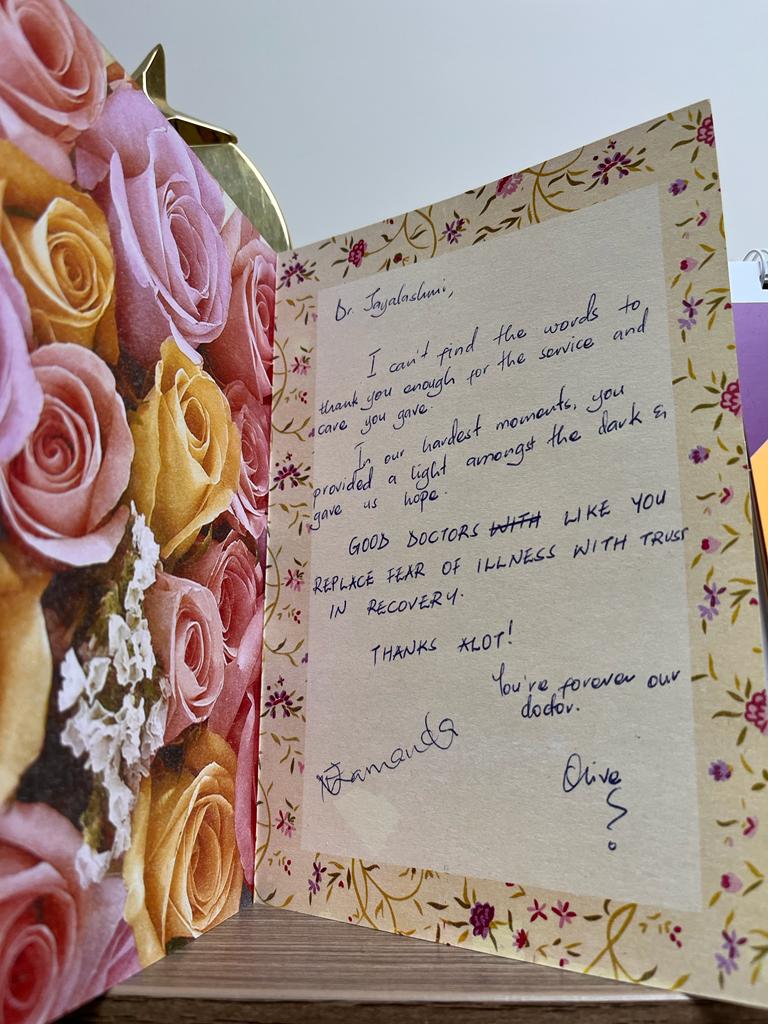 Dr. Jayalashmi,
I can't find the words to
thank you enough for the service and
care you gave.
In our hardest moments, you
provided a light amongst the dark &
gave us hope.
GOOD DOCTORS WITH LIKE YOU
REPLACE FEAR OF ILLNESS WITH TRUST
IN RECOVERY.
THANKS ALOT!
You're forever our
doctor.
Olive